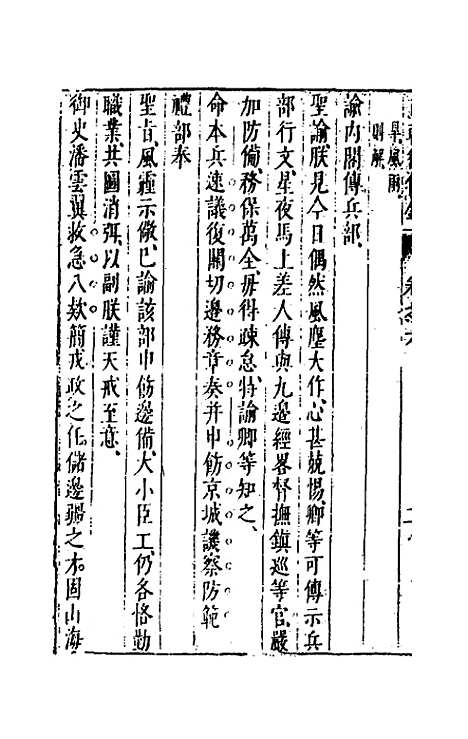 諭內閣傳兵部
聖諭朕見今日偶然風塵大作心甚兢惕卿等可傳示兵
部行文星夜馬上差人傳與九邊經畧督撫鎮巡等官嚴
加防備務保萬全毋得疎怠特諭卿等知之
命本兵速議復關切邊務章奏并申飭京城譏察防範
禮部奉
聖旨風霾示儆已諭該部申飭邊備大小臣工仍各恪勤
職業共圖消弭以副朕謹天戒至意
御史潘雲翼救急八欵簡戎政之任儲邊疆之才固山海